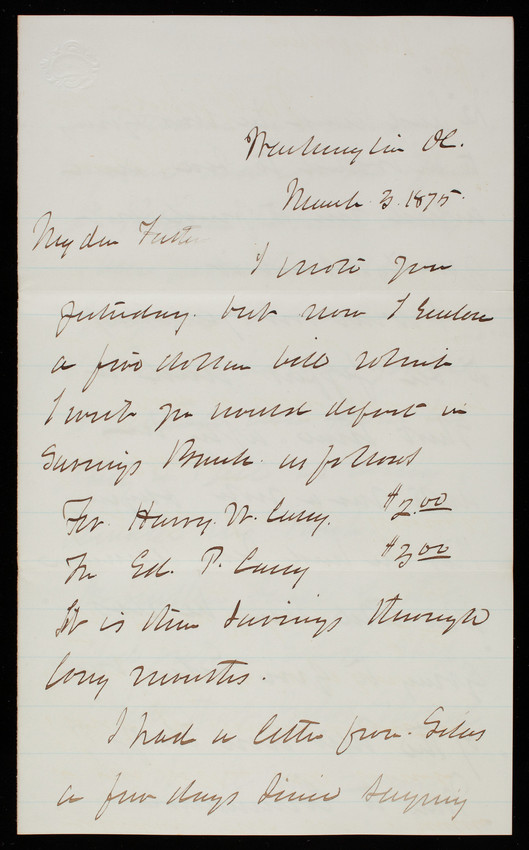 Washington DC.
March 3. 1875.
My dear Father
I wrote you
yesterday. but now I Enclose
a five dollar bill which
I wish you would deposit in
Savings Bank. as follows
For Harry. W. Casey. $2.00
For Ed. P. Casey $3.00
It is their Savings through
long months.
I had a letter from. Silas
a few days since saying